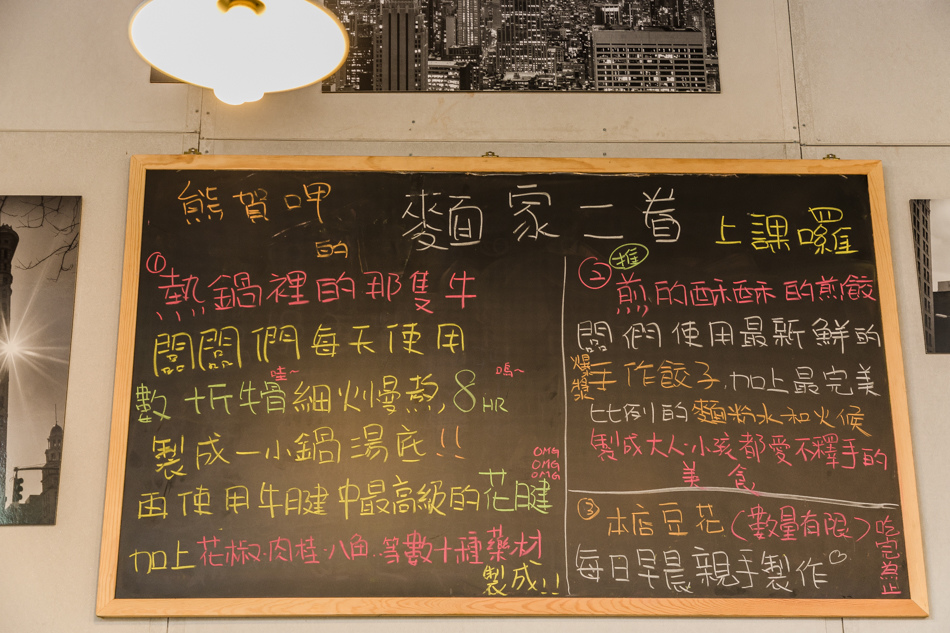 熊賀呷
的
麵家二首
上課囉
①
熱鍋裡的那隻牛
闆闆們每天使用
哇~
嗚~
數十斤牛骨細火慢熬,8HR
製成一小鍋湯底!!
OMG
OMG
OMG
再使用牛腱中最高級的花腱
加上花椒.肉桂.八角..等數十種藥材
製成!!
②
推
煎的酥酥的煎餃
闆們使用最新鮮的
爆漿
手作餃子,加上最完美
比例的麵粉水和火候
製成大人.小孩都愛不釋手的
美食
③本店豆花(數量有限)吃完為止
每日早晨親手製作